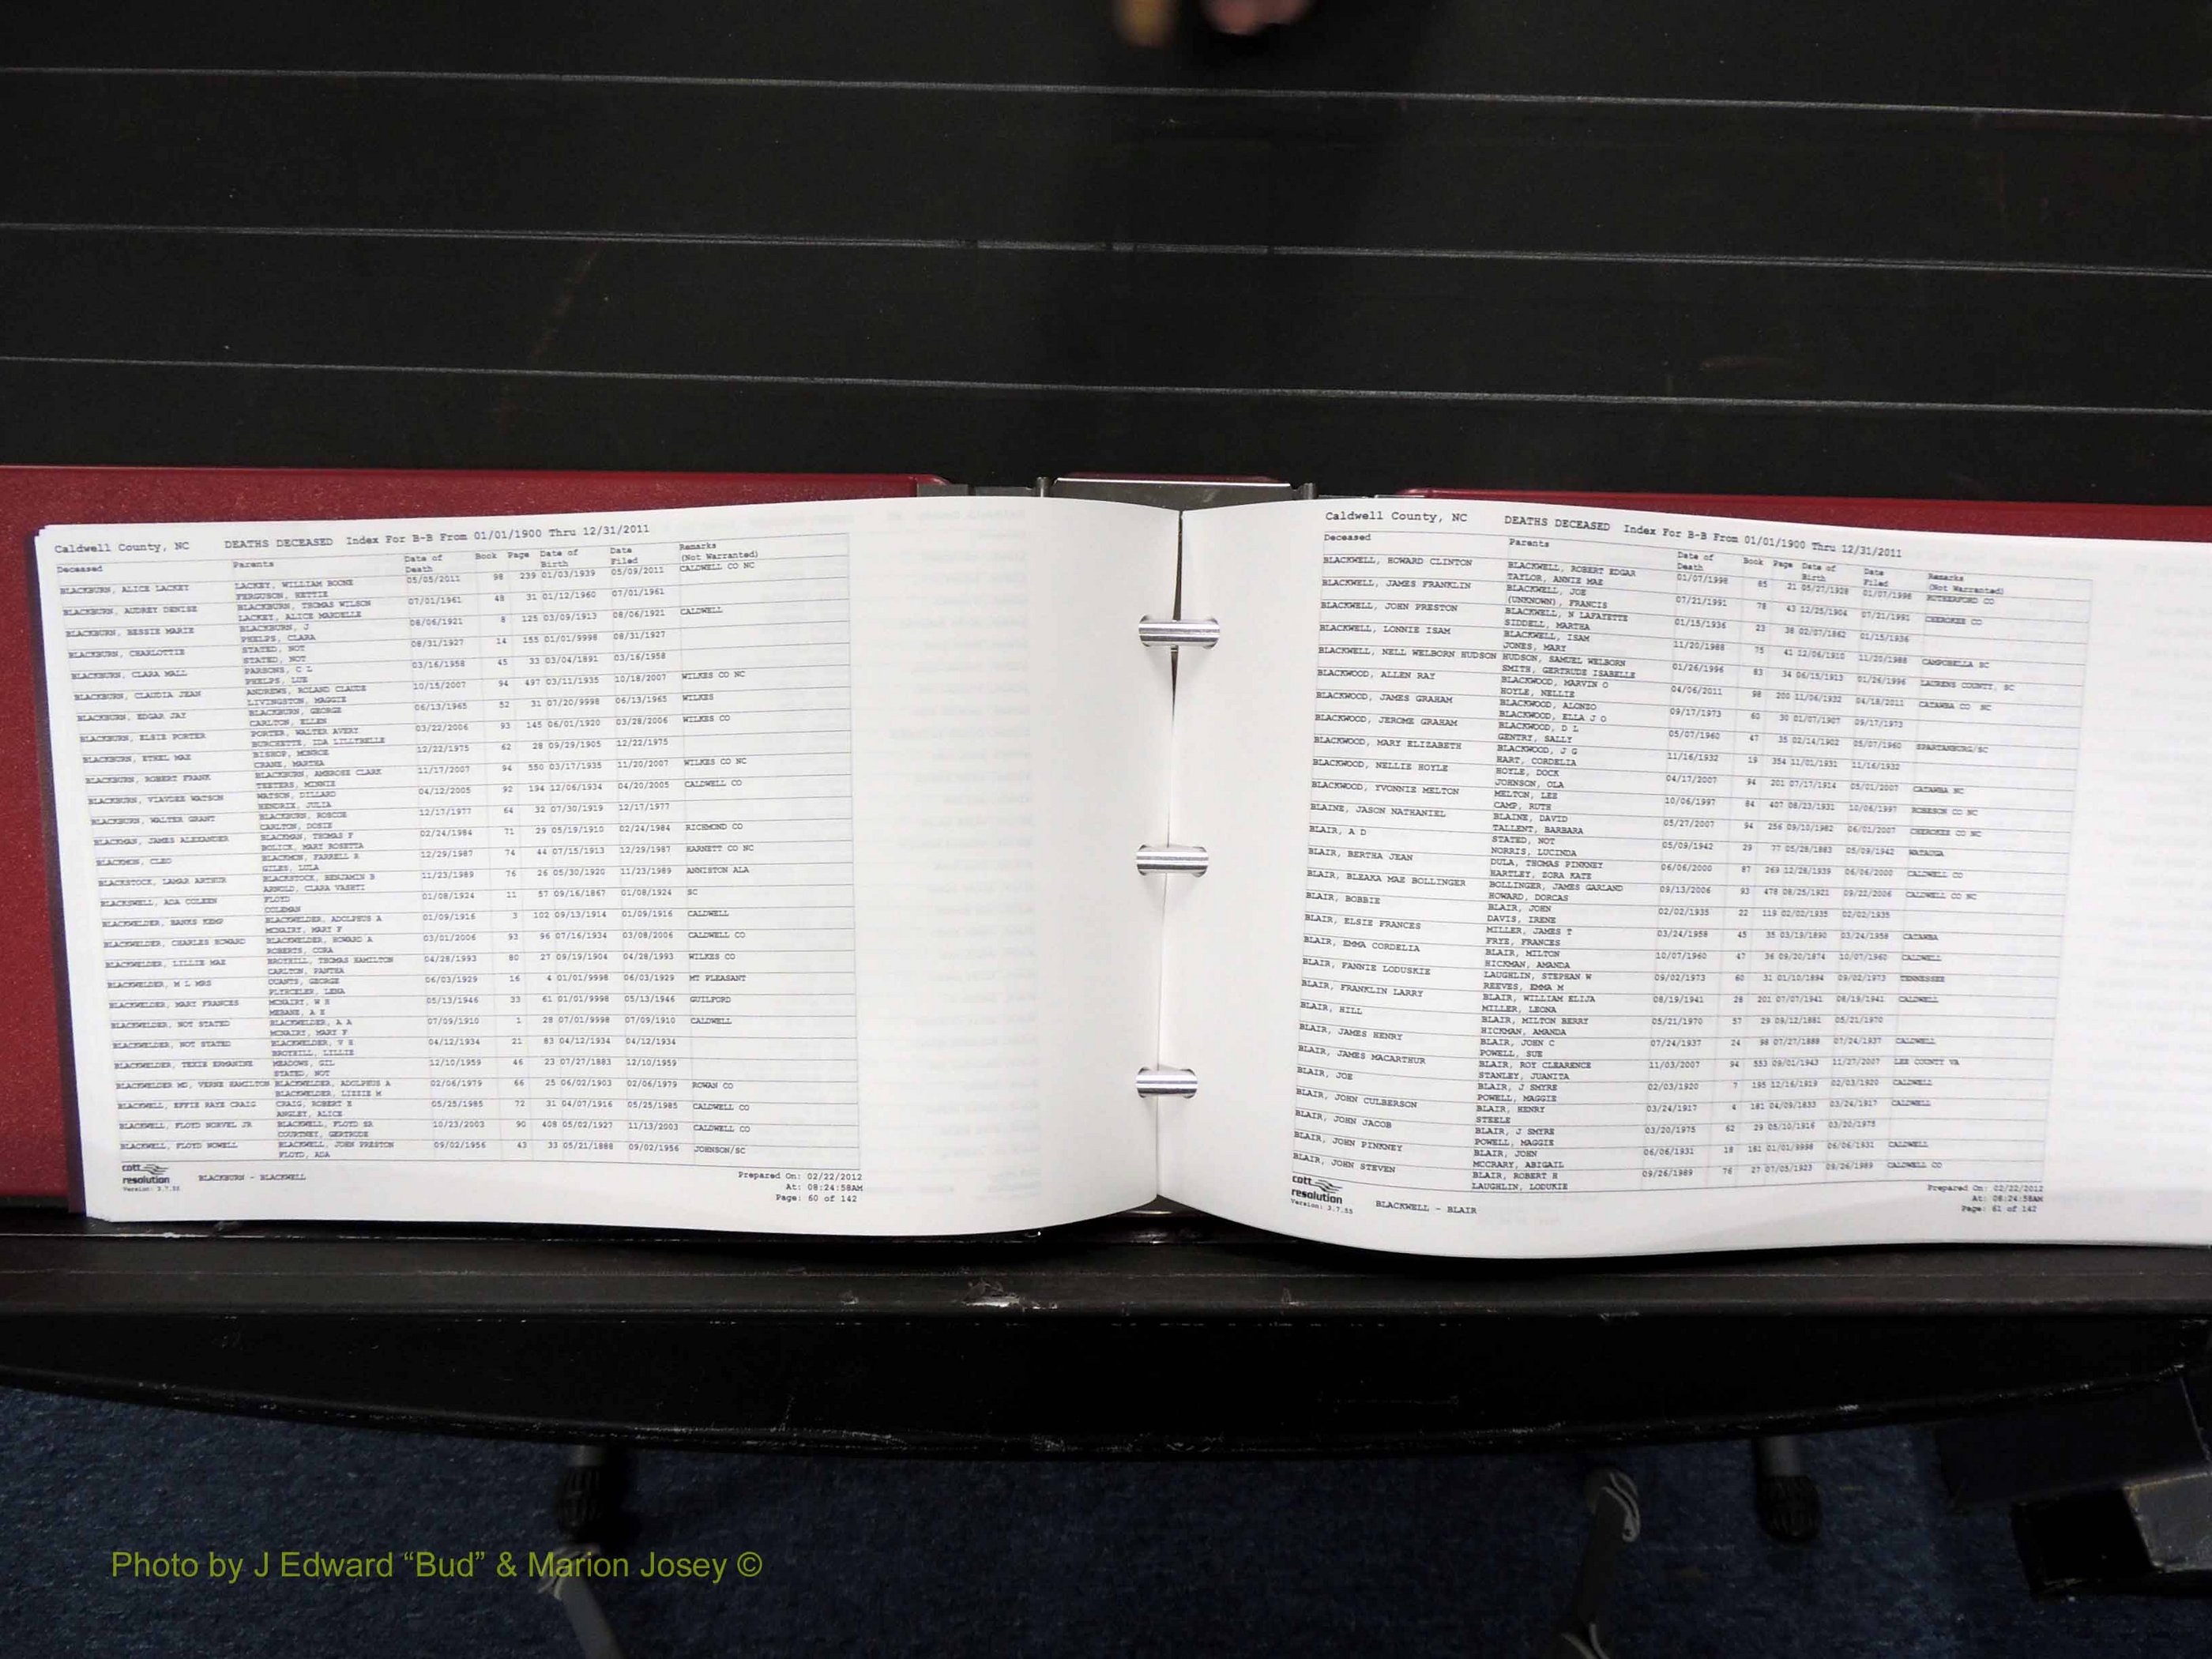 Caldwell County, NC DEATHS DECEASED Index For B-B From 01/01/1900 Thru 12/31/2011
Deceased Parents Date of Death Book Page Date of Birth Date Filed Remarks (Not Warranted)
BLACKBURN, ALICE LACKEY LACKEY, WILLIAM BOONE 05/05/2011 98 239 01/03/1939 05/09/2011 CALDWELL CO NC
FERGUSON, HETTIE
BLACKBURN, AUDREY DENISE BLACKBURN, THOMAS WILSON 07/01/1961 48 31 01/12/1960 07/01/1961
LACKEY, ALICE MARDELLE
BLACKBURN, BESSIE MARIE BLACKBURN, J 08/06/1921 8 125 03/09/1913 08/06/1921 CALDWELL
PHELPS, CLARA
BLACKBURN, CHARLOTTIE STATED, NOT 08/31/1927 14 155 01/01/9998 08/31/1927
STATED, NOT
BLACKBURN, CLARA MALL PARSONS, C L 03/16/1958 45 33 03/04/1891 03/16/1958
PHELPS, LUE
BLACKBURN, CLAUDIA JEAN ANDREWS, ROLAND CLAUDE 10/15/2007 94 497 03/11/1935 10/18/2007 WILKES CO NC
LIVINGSTON, MAGGIE
BLACKBURN, EDGAR JAY BLACKBURN, GEORGE 06/13/1965 52 31 07/20/9998 06/13/1965 WILKES
CARLTON, ELLEN
BLACKBURN, ELSIE PORTER PORTER, WALTER AVERY 03/22/2006 93 145 06/01/1920 03/28/2006 WILKES CO
BURCHETTE, IDA LILLYBELLE
BLACKBURN, ETHEL MAE BISHOP, MONROE 12/22/1975 62 28 09/29/1905 12/22/1975
CRANE, MARTHA
BLACKBURN, ROBERT FRANK BLACKBURN, AMBROSE CLARK 11/17/2007 94 550 03/17/1935 11/20/2007 WILKES CO NC
TEETERS, MINNIE
BLACKBURN, VIAUDEE WATSON WATSON, DILLARD 04/12/2005 92 194 12/06/1934 04/20/2005 CALDWELL CO
HENDRIX, JULIA
BLACKBURN, WALTER GRANT BLACKBURN, ROSCOE 12/17/1977 64 32 07/30/1919 12/17/1977
CARLTON, DOSIE
BLACKMAN, JAMES ALEXANDER BLACKMAN, THOMAS F 02/24/1984 71 29 05/19/1910 02/24/1984 RICHMOND CO
BOLICK, MARY ROSETTA
BLACKMON, CLEO BLACKMON, FARRELL R 12/29/1987 74 44 07/15/1913 12/29/1987 HARNETT CO NC
GILES, LULA
BLACKSTOCK, LAMAR ARTHUR BLACKSTOCK, BENJAMIN B 11/23/1989 76 26 05/30/1920 11/23/1989 ANNISTON ALA
ARNOLD, CLARA VASHTI
BLACKSWELL, ADA COLEEN FLOYD 01/08/1924 11 57 09/16/1867 01/08/1924 SC
COLEMAN
BLACKWELDER, BANKS KEMP BLACKWELDER, ADOLPHUS A 01/09/1916 3 102 09/13/1914 01/09/1916 CALDWELL
MCNAIRY, MARY F
BLACKWELDER, CHARLES HOWARD BLACKWELDER, HOWARD A 03/01/2006 93 96 07/16/1934 03/08/2006 CALDWELL CO
ROBERTS, CORA
BLACKWELDER, LILLIE MAE BROYHILL, THOMAS HAMILTON 04/28/1993 80 27 09/19/1904 04/28/1993 WILKES CO
CARLTON, PANTHA
BLACKWELDER, M L MRS COANTS, GEORGE 06/03/1929 16 4 01/01/9998 06/03/1929 MT PLEASANT
BLACKWELDER, MARY FRANCES MCNAIRY, W H 05/13/1946 33 61 01/01/9998 05/13/1946 GUILFORD
MEBANE, A E
BLACKWELDER, NOT STATED BLACKWELDER, A A 07/09/1910 1 28 07/01/9998 07/09/1910 CALDWELL
MCNAIRY, MARY F
BLACKWELDER, NOT STATED BLACKWELDER, V H 04/12/1934 21 83 04/12/1934 04/12/1934
BROYHILL, LILLIE
BLACKWELDER, TEXIE ERMANINE MEADOWS, GIL 12/10/1959 46 23 07/27/1883 12/10/1959
STATED, NOT
BLACKWELDER MD, VERNE HAMILTON BLACKWELDER, ADOLPHUS A 02/06/1979 66 25 06/02/1903 02/06/1979 ROWAN CO
BLACKWELDER, LIZZIE M
BLACKWELL, EFFIE RAYE CRAIG CRAIG, ROBERT E 05/25/1985 72 31 04/07/1916 05/25/1985 CALDWELL CO
ANGLEY, ALICE
BLACKWELL, FLOYD NORVEL JR BLACKWELL, FLOYD SR 10/23/2003 90 408 05/02/1927 11/13/2003 CALDWELL CO
COURTNEY, GERTRUDE
BLACKWELL, FLOYD NOWELL BLACKWELL, JOHN PRESTON 09/02/1956 43 33 05/21/1888 09/02/1956 JOHNSON/SC
FLOYD, ADA
cott
resolution
Version: 3.7.55
BLACKBURN - BLACKWELL
Prepared On: 02/22/2012
At: 08:24:58AM
Page: 60 of 142
Caldwell County, NC DEATHS DECEASED Index For B-B From 01/01/1900 Thru 12/31/2011
Deceased Parents Date of Death Book Page Date of Birth Date Filed Remarks (Not Warranted)
BLACKWELL, HOWARD CLINTON BLACKWELL, ROBERT EDGAR 01/07/1998 85 21 05/27/1928 01/07/1998 RUTHERFORD CO
TAYLOR, ANNIE MAE
BLACKWELL, JAMES FRANKLIN BLACKWELL, JOE 07/21/1991 78 43 12/25/1904 07/21/1991 CHEROKEE CO
(UNKNOWN), FRANCIS
BLACKWELL, JOHN PRESTON BLACKWELL, N LAFAYETTE 01/15/1936 23 38 02/07/1862 01/15/1936
SIDDELL, MARTHA
BLACKWELL, LONNIE ISAM BLACKWELL, ISAM 11/20/1988 75 41 12/06/1910 11/20/1988 CAMPOBELLA SC
JONES, MARY
BLACKWELL, NELL WELBORN HUDSON HUDSON, SAMUEL WELBORN 01/26/1996 83 34 06/15/1913 01/26/1996 LAURENS COUNTY, SC
SMITH, GERTRUDE ISABELLE
BLACKWOOD, ALLEN RAY BLACKWOOD, MARVIN O 04/06/2011 98 200 11/06/1932 04/18/2011 CATAWBA CO NC
HOYLE, NELLIE
BLACKWOOD, JAMES GRAHAM BLACKWOOD, ALONZO 09/17/1973 60 30 01/07/1907 09/17/1973
BLACKWOOD, ELLA J O
BLACKWOOD, JEROME GRAHAM BLACKWOOD, D L 05/07/1960 47 35 02/14/1902 05/07/1960 SPARTANBURG/SC
GENTRY, SALLY
BLACKWOOD, MARY ELIZABETH BLACKWOOD, J G 11/16/1932 19 354 11/01/1931 11/16/1932
HART, CORDELIA
BLACKWOOD, NELLIE HOYLE HOYLE, DOCK 04/17/2007 94 201 07/17/1914 05/01/2007 CATAWBA NC
JOHNSON, OLA
BLACKWOOD, YVONNIE MELTON MELTON, LEE 10/06/1997 84 407 08/23/1931 10/06/1997 ROBESON CO NC
CAMP, RUTH
BLAINE, JASON NATHANIEL BLAINE, DAVID 05/27/2007 94 256 09/10/1982 06/01/2007 CHEROKEE CO NC
TALLENT, BARBARA
BLAIR, A D STATED, NOT 05/09/1942 29 77 05/28/1883 05/09/1942 WATAUGA
NORRIS, LUCINDA
BLAIR, BERTHA JEAN DULA, THOMAS PINKNEY 06/06/2000 87 269 12/28/1939 06/06/2000 CALDWELL CO
HARTLEY, ZORA KATE
BLAIR, BLEAKA MAE BOLLINGER BOLLINGER, JAMES GARLAND 09/13/2006 93 478 08/25/1921 09/22/2006 CALDWELL CO NC
HOWARD, DORCAS
BLAIR, BOBBIE BLAIR, JOHN 02/02/1935 22 119 02/02/1935 02/02/1935
DAVIS, IRENE
BLAIR, ELSIE FRANCES MILLER, JAMES T 03/24/1958 45 35 03/19/1890 03/24/1958 CATAWBA
FRYE, FRANCES
BLAIR, EMMA CORDELIA BLAIR, MILTON 10/07/1960 47 36 09/20/1874 10/07/1960 CALDWELL
HICKMAN, AMANDA
BLAIR, FANNIE LODUSKIE LAUGHLIN, STEPHAN W 09/02/1973 60 31 01/10/1894 09/02/1973 TENNESSEE
REEVES, EMMA M
BLAIR, FRANKLIN LARRY BLAIR, WILLIAM ELIJA 08/19/1941 28 201 07/07/1941 08/19/1941 CALDWELL
MILLER, LEONA
BLAIR, HILL BLAIR, MILTON BERRY 05/21/1970 57 29 09/12/1881 05/21/1970
HICKMAN, AMANDA
BLAIR, JAMES HENRY BLAIR, JOHN C 07/24/1937 24 98 07/27/1888 07/24/1937 CALDWELL
POWELL, SUE
BLAIR, JAMES MACARTHUR BLAIR, ROY CLEARENCE 11/03/2007 94 553 09/01/1943 11/27/2007 LEE COUNTY VA
STANLEY, JUANITA
BLAIR, JOE BLAIR, J SMYRE 02/03/1920 7 195 12/16/1919 02/03/1920 CALDWELL
POWELL, MAGGIE
BLAIR, JOHN CULBERSON BLAIR, HENRY 03/24/1917 4 181 04/09/1833 03/24/1917 CALDWELL
STEELE
BLAIR, JOHN JACOB BLAIR, J SMYRE 03/20/1975 62 29 05/10/1916 03/20/1975
POWELL, MAGGIE
BLAIR, JOHN PINKNEY BLAIR, JOHN 06/06/1931 18 181 01/01/9998 06/06/1931 CALDWELL
MCCRARY, ABIGAIL
BLAIR, JOHN STEVEN BLAIR, ROBERT H 09/26/1989 76 27 07/05/1923 09/26/1989 CALDWELL CO
LAUGHLIN, LODUKIE
cott
resolution
Version: 3.7.55
BLACKWELL - BLAIR
Prepared On: 02/22/2012
At: 08:24:58AM
Page: 61 of 142
Photo by J Edward “Bud” & Marion Josey ©